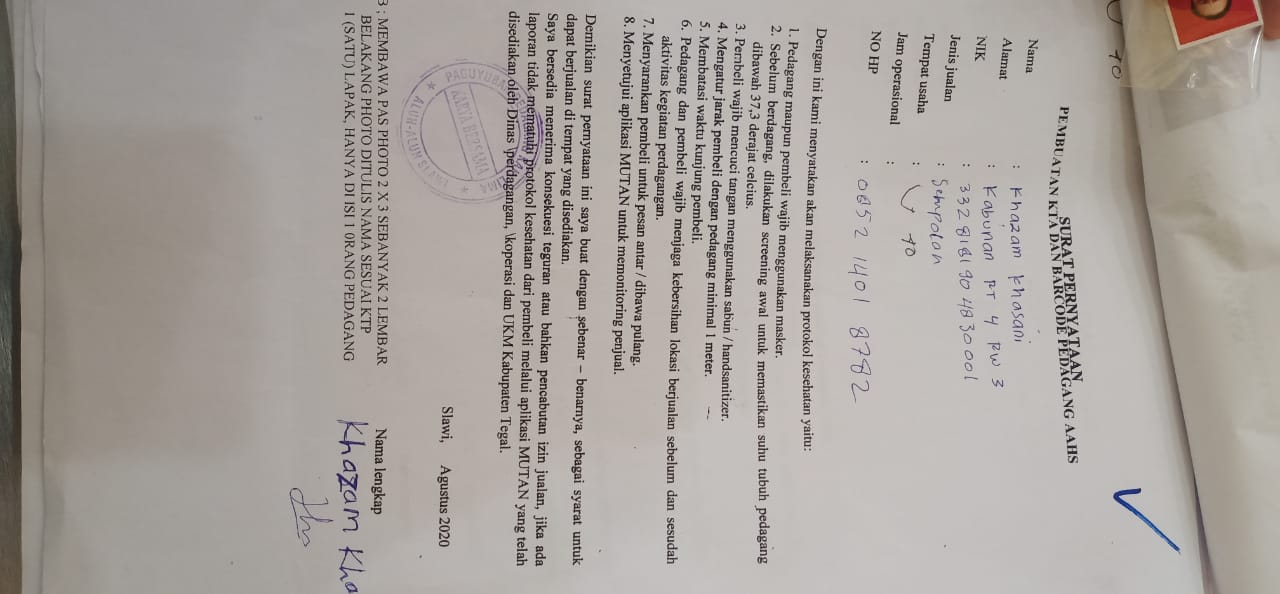 SURAT PERNYATAAN
PEMBUATAN KTA DAN BARCODE PEDAGANG AAHS
Nama : Khazam Khasani
Alamat : Kabunan RT 4 RW 3
NIK : 3328181904830001
Jenis jualan : Sempolan
Tempat usaha : 70
Jam operasional :
NO HP : 0852 1401 8782
Dengan ini kami menyatakan akan melaksanakan protokol kesehatan yaitu:
1. Pedagang maupun pembeli wajib menggunakan masker.
2. Sebelum berdagang, dilakukan screening awal untuk memastikan suhu tubuh pedagang
dibawah 37,3 derajat celcius.
3. Pembeli wajib mencuci tangan menggunakan sabun / handsanitizer.
4. Mengatur jarak pembeli dengan pedagang minimal 1 meter.
5. Membatasi waktu kunjung pembeli.
6. Pedagang dan pembeli wajib menjaga kebersihan lokasi berjualan sebelum dan sesudah
aktivitas kegiatan perdagangan.
7. Menyarankan pembeli untuk pesan antar / dibawa pulang.
8. Menyetujui aplikasi MUTAN untuk memonitoring penjual.
Demikian surat pernyataan ini saya buat dengan sebenar – benarnya, sebagai syarat untuk
dapat berjualan di tempat yang disediakan.
Saya bersedia menerima konsekuesi teguran atau bahkan pencabutan izin jualan, jika ada
laporan tidak mematuhi protokol kesehatan dari pembeli melalui aplikasi MUTAN yang telah
disediakan oleh Dinas \perdagangan, \koperasi dan UKM Kabupaten Tegal.
ALUN-ALUN SLAWI
Slawi, Agustus 2020
Nama lengkap
Khazam Kha
B ; MEMBAWA PAS PHOTO 2 X 3 SEBANYAK 2 LEMBAR
BELAKANG PHOTO DITULIS NAMA SESUAI KTP
1 (SATU) LAPAK, HANYA DI ISI 1 0RANG PEDAGANG
70